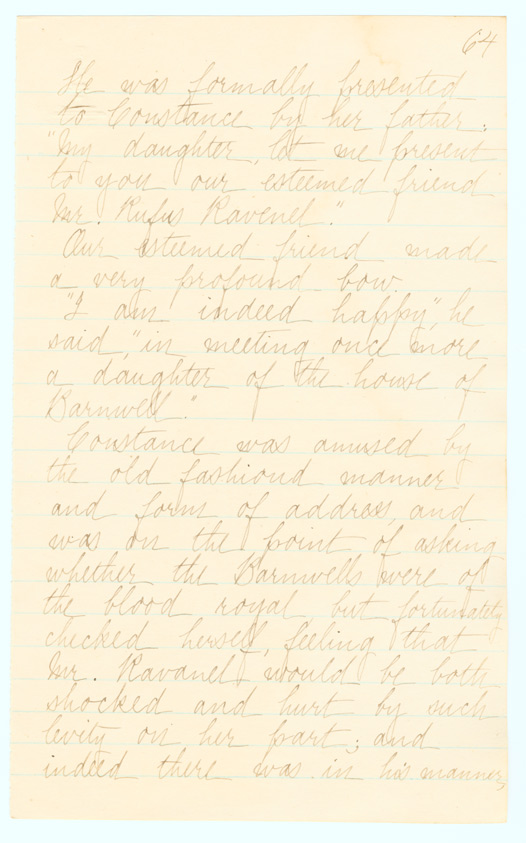 64
He was formally presented
to Constance by her father:
"My daughter, let me present
to you our esteemed friend
Mr. Rufus Ravenel."
Our esteemed friend made
a very profound bow.
"I am indeed happy", he
said, "in meeting once more
a daughter of the house of
Barnwell."
Constance was amused by
the old fashiond manner
and form of address, and
was on the point of asking
whether the Barnwells were of
the blood royal, but fortunately
checked herself, feeling that
Mr. Ravanel would be both
shocked and hurt by such
levity on her part; and
indeed there was in his manner,